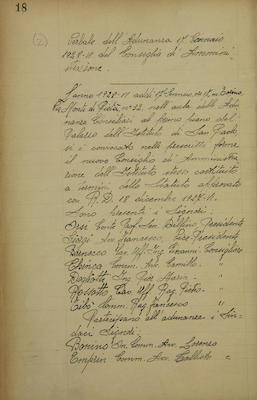 18
(2)
Verbale dell'Adunanza 17 Gennaio
1928-VI del Consiglio di Ammini-
strazione.
L'anno 1928-VI addì 17 Gennaio, in Torino,
Via Monte di Pietà n. 32, nell'aula delle Adu-
nanze Consiliari al piano
Palazzo dell'Istituto di San Paolo
si è convocato nelle prescritte forme
il nuovo Consiglio di Amministra-
zione dell'Istituto stesso costituito
a termini dello Statuto approvato
con R. D. 18 dicembre 1927-VI.
Sono presenti i Signori:
Orsi Conte Prof. Delfino Presidente
Avv. Francesco, Vice-Presidente
Cav. Uff. Ing. Giovanni Consigliere
Comm. Avv. Camillo "
Ing. Pier Maria "
Rossotto Cav. Uff. Rag. Pietro "
Comm. Rag. Francesco "
Partecipano all'adunanza i Sin-
daci Signori:
Bonino On. Comm. Avv. Lorenzo
Comm. Avv. Callisto "